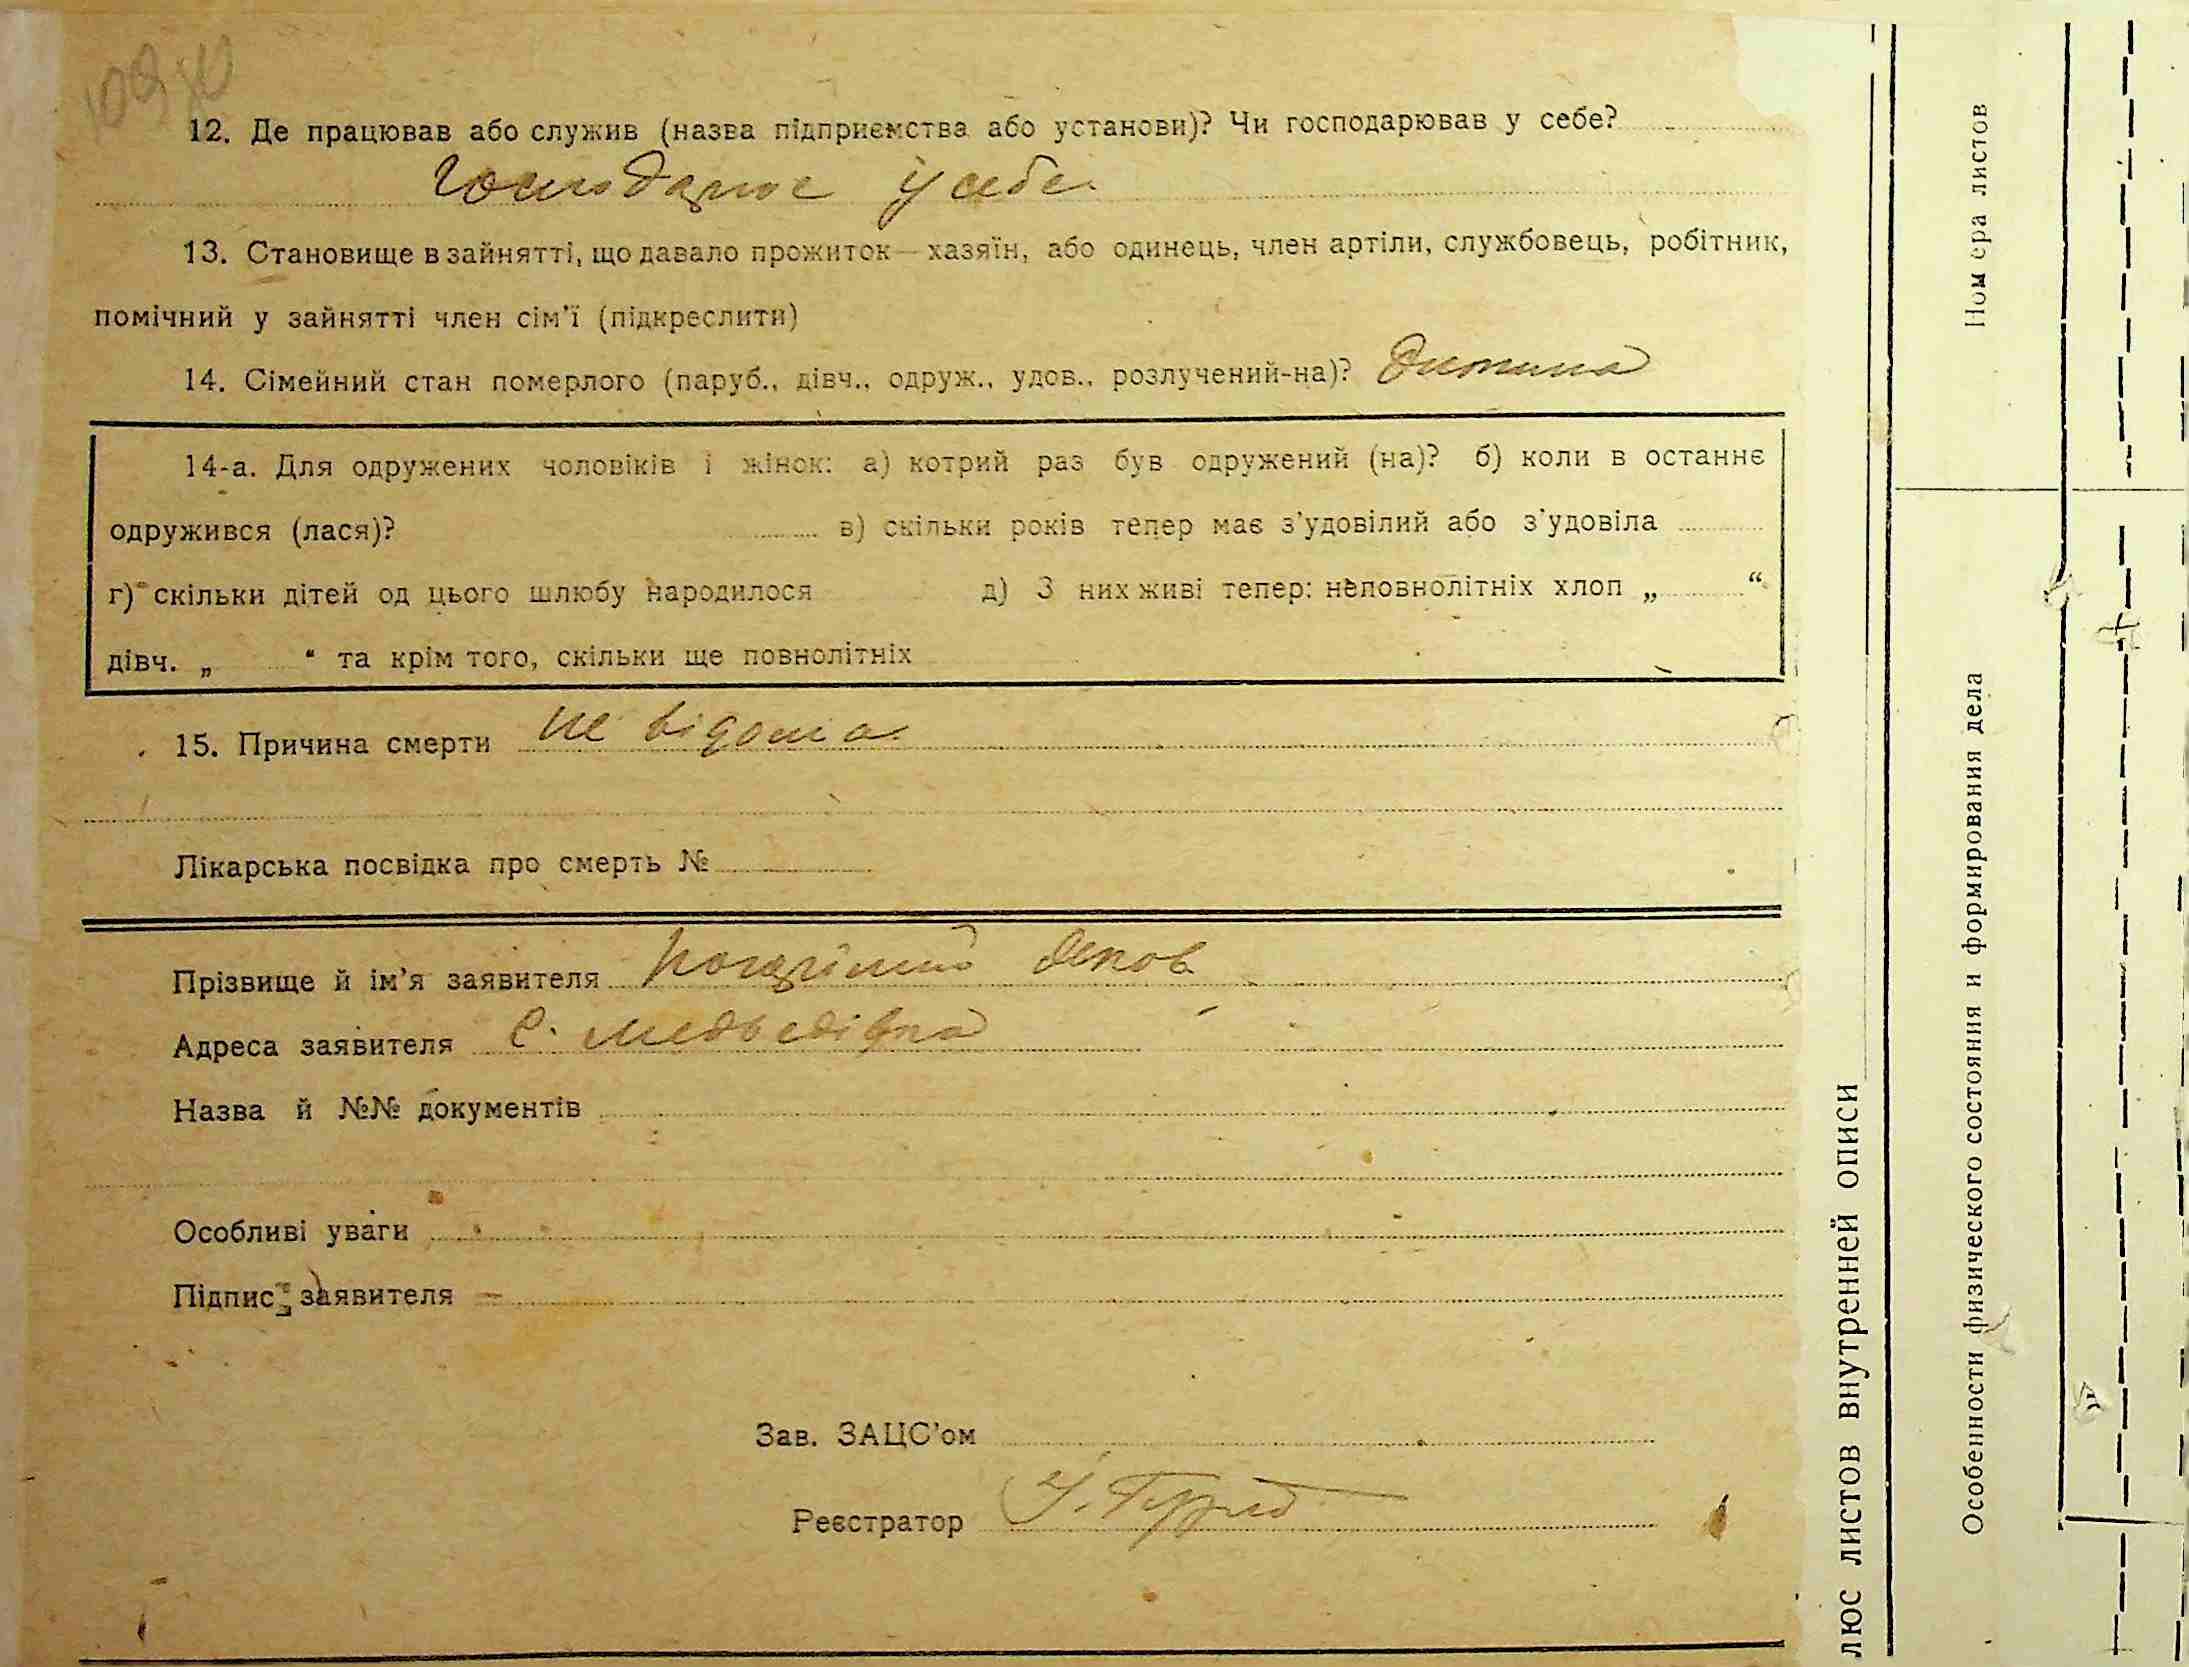 12. Де працював або служив (назва підприємства або установи)? Чи господарював у себе?
Господарює у себе.
13. Становище в зайнятті, що давало прожиток—хазяїн, або одинець, член артіли, службовець, робітник,
помічний у зайнятті член сім'ї (підкреслити)
14. Сімейний стан померлого (паруб., дівч., одруж., удов., розлучений-на)? Дитина
14-а. Для одружених чоловіків і жінок: а) котрий раз був одружений (на)? б) коли в останнє
одружився (лася)? в) скільки років тепер має з'удовілий або з'удовіла
г) скільки дітей од цього шлюбу народилося д) З них живі тепер: неповнолітніх хлоп „ “
дівч. „ “ та крім того, скільки ще повнолітніх
15. Причина смерти не відома.
Лікарська посвідка про смерть №
Прізвище й ім'я заявителя
Адреса заявителя С. Медведівка
Назва й №№ документів
Особливі уваги
Підпис заявителя
Зав. ЗАЦС'ом
Реєстратор
люс листов внутренней описи
Номера листов
Особенности физического состояния и формирования дела